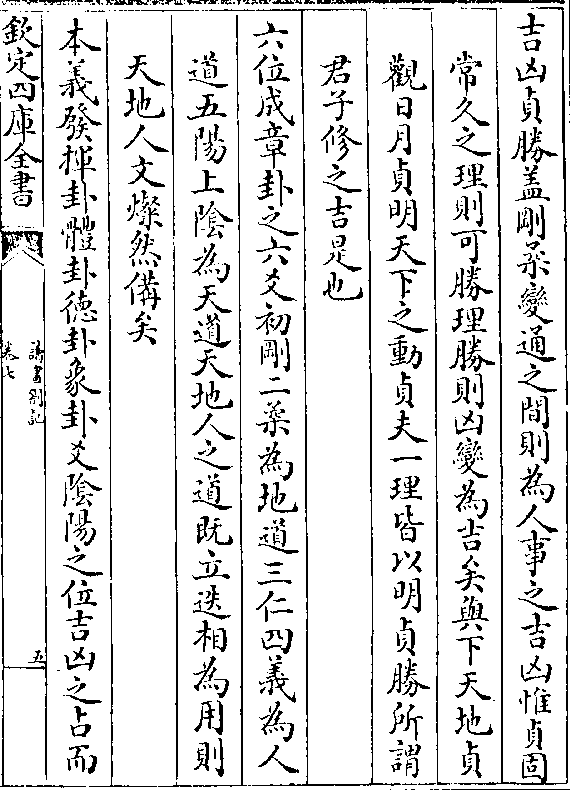 吉凶貞勝盖剛柔變通之間則為人事之吉凶惟貞固
常久之理則可勝理勝則凶變為吉矣與下天地貞
觀日月貞明天下之動貞夫一理皆以明貞勝所謂
君子修之吉是也
六位成章卦之六爻初剛二柔為地道三仁四義為人
道五陽上陰為天道天地人之道既立迭相為用則
天地人文燦然備矣
本義發揮卦體卦德卦象卦爻陰陽之位吉凶之占而
欽定四庫全書
讀書劄記
卷七
五